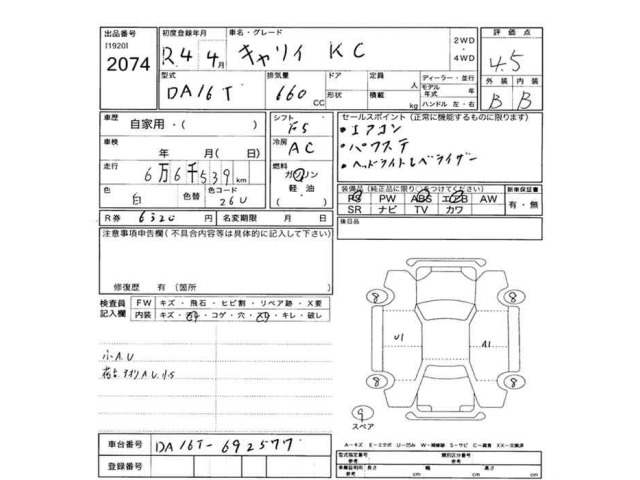 出品番号
[1920]
2074
初度登録年月
R.4 4月
車名・グレード
キャリイ KC
2WD
・
4WD
評価点
4.5
外装 内装
B B
型式
DA16T
排気量
660 CC
ドア
形状
定員 人
積載 kg
ディーラー・並行
モデル年式 年
ハンドル 左・右
車歴
自家用・( )
車検
年 月( 日)
走行
6万6千539 km
色
白
色替
色コード
26U
シフト
F5
冷房
AC
燃料
ガソリン
軽油
( )
セールスポイント(正常に機能するものに限ります)
・エアコン
・パワステ
・ヘッドライトレベライザー
装備品(純正品に限り○をつけてください)
PS PW ABS エアB AW
SR ナビ TV カワ
新車保証書
有・無
後日品
R券 6320 円
名変期限 月 日
注意事項申告欄(不具合内容等は具体的に記入して下さい)
修復歴 有(箇所 )
検査員記入欄
FW キズ・飛石・ヒビ割・リペア跡・X要
内装 キズ・汚れ・コゲ・穴・スリ・キレ・破レ
小A.U
8 8
U1 A1
8 8
9
スペア
A－キズ E－エクボ U－凹み W－補修跡 S－サビ C－腐食 XX－交換済
車台番号 DA16T-692577
登録番号
型式指定番号
参考
類別区分番号
参考
車庫証明用
参考
長さ cm
幅 cm
高さ cm